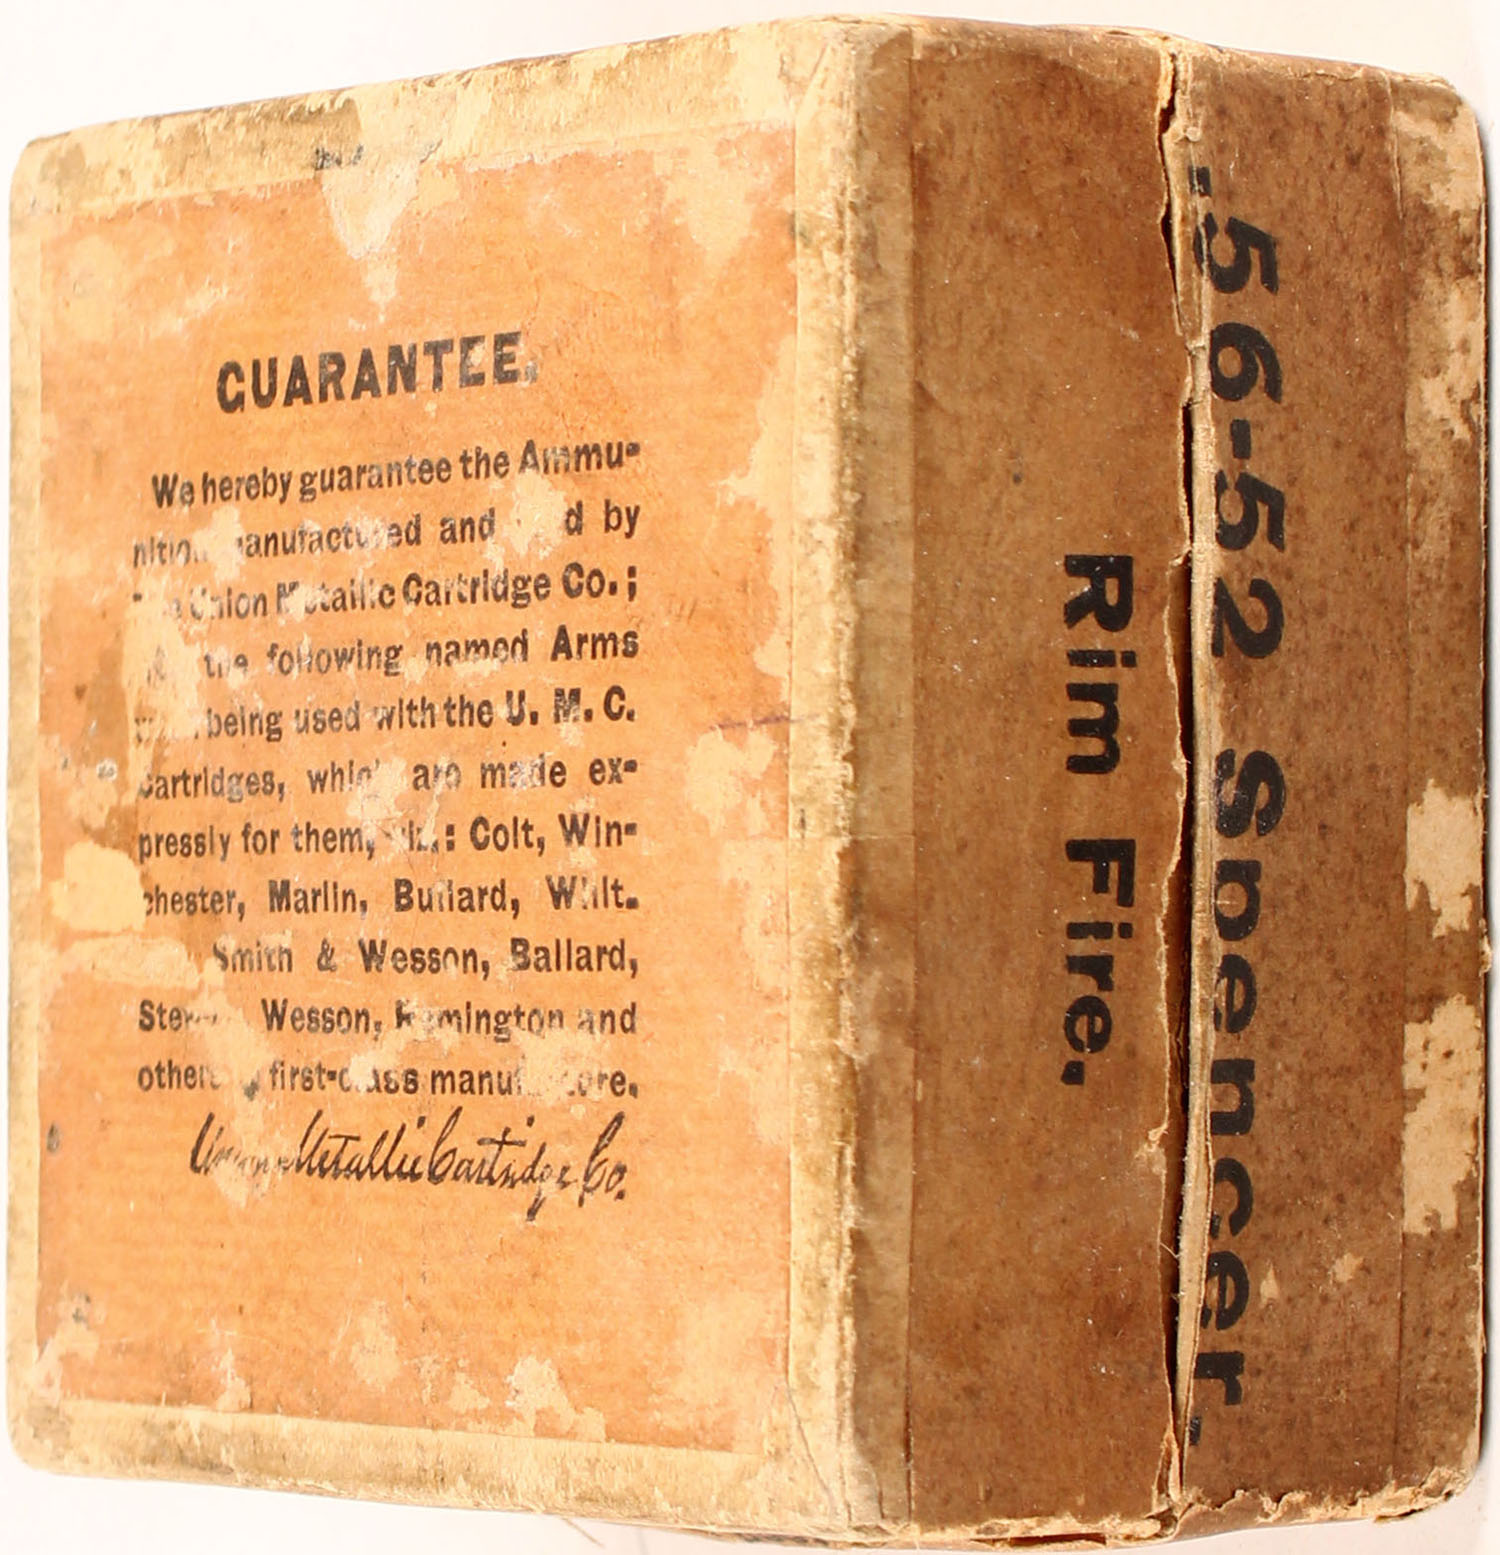 GUARANTEE.
We hereby guarantee the Ammu-
manufactured and by
Union Metallic Cartridge Co.;
the following named Arms
being used with the U. M. C.
Cartridges, which are made ex-
pressly for them, viz.: Colt, Win-
chester, Marlin, Bullard,
Smith & Wesson, Ballard,
Wesson, Remington and
first-class manufacture.
Union Metallic Cartridge Co.
.56-52 Spencer.
Rim Fire.